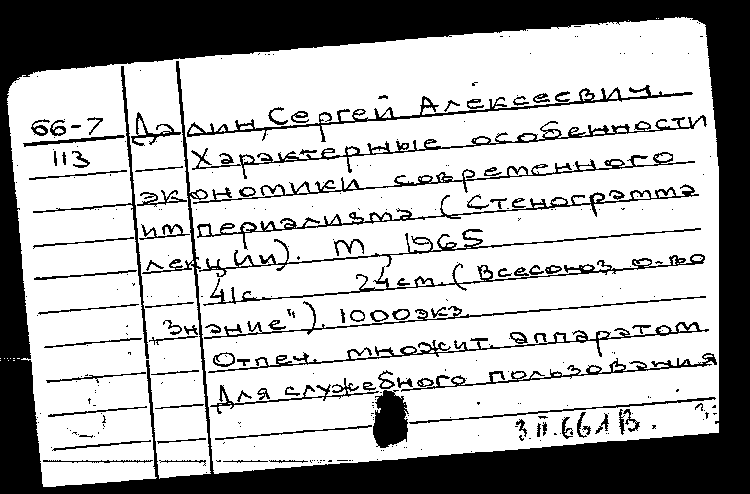 66-7 Далин, Сергей Алексеевич.
113 Характерные особенности
экономики современного
империализма. (Стенограмма
лекции). М., 1965
41с. 24см. (Всесоюз. о-во
„Знание"). 1000экз.
Отпеч. множит. аппаратом.
Для служебного пользования
3.II.66 1В.